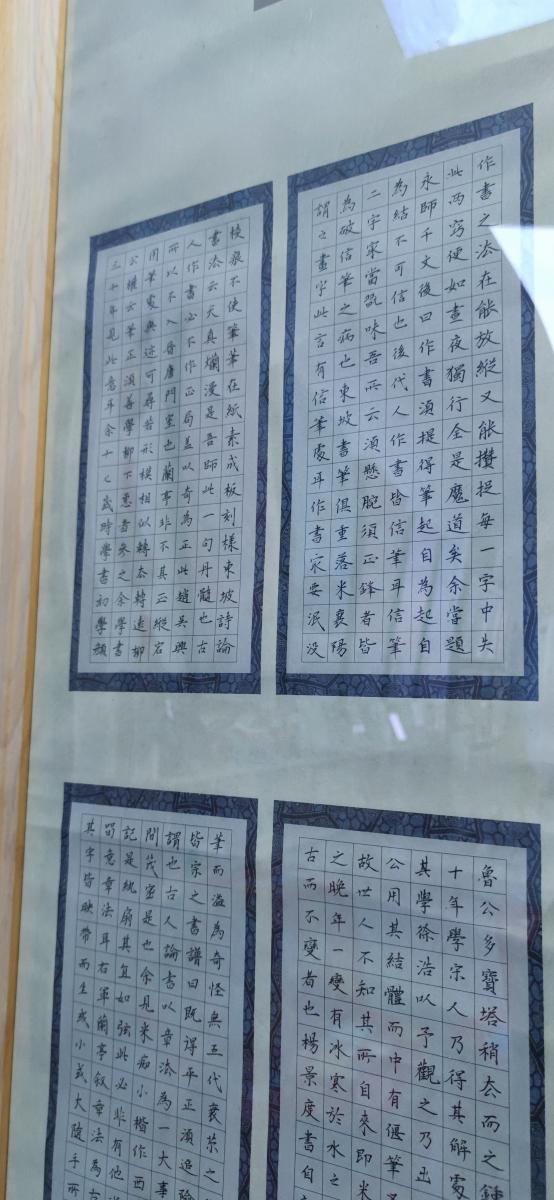 作書之法在能放縱又能攢捉每一字中失
此兩竅便如晝夜獨行全是魔道矣余當題
永師千文後曰作書須提得筆起自為起自
為結不可信也後代人作書皆信筆耳信筆
二字㝡當翫味吾所云須懸腕須正鋒者皆
為破信筆之病也東坡書筆俱重落米襄陽
謂之畫字此言有信筆處耳作書家要泯没
棱痕不使筆筆在紙素成板刻樣東坡詩論
書法云天真爛漫是吾師此一句丹髓也古
人作書必不作正局蓋以奇為正此趙吳興
所以不入晉唐門室也蘭亭非不其正縱宕
用筆處無迹可尋若形模相似轉去轉遠柳
公權云筆正須善學柳下惠者參之余學書
三十年見此意耳余十七歲時學書初學顏
魯公多寶塔稍去而之鍾
十年學宋人乃得其解處
其學徐浩以予觀之乃出
公用其結體而中有偃筆
故世人不知其所自來即米
之晚年一變有冰寒於水之
古而不變者也楊景度書自
筆而溢為奇怪無五代衰苶之
皆宗之書譜曰既得平正須追險
謂也古人論書以章法為一大事
問茂密是也余見米痴小楷作西
記是紈扇其直如弦此必非有他
習意章法耳右軍蘭亭敘章法為古
其字皆映帶而生或小或大隨手所